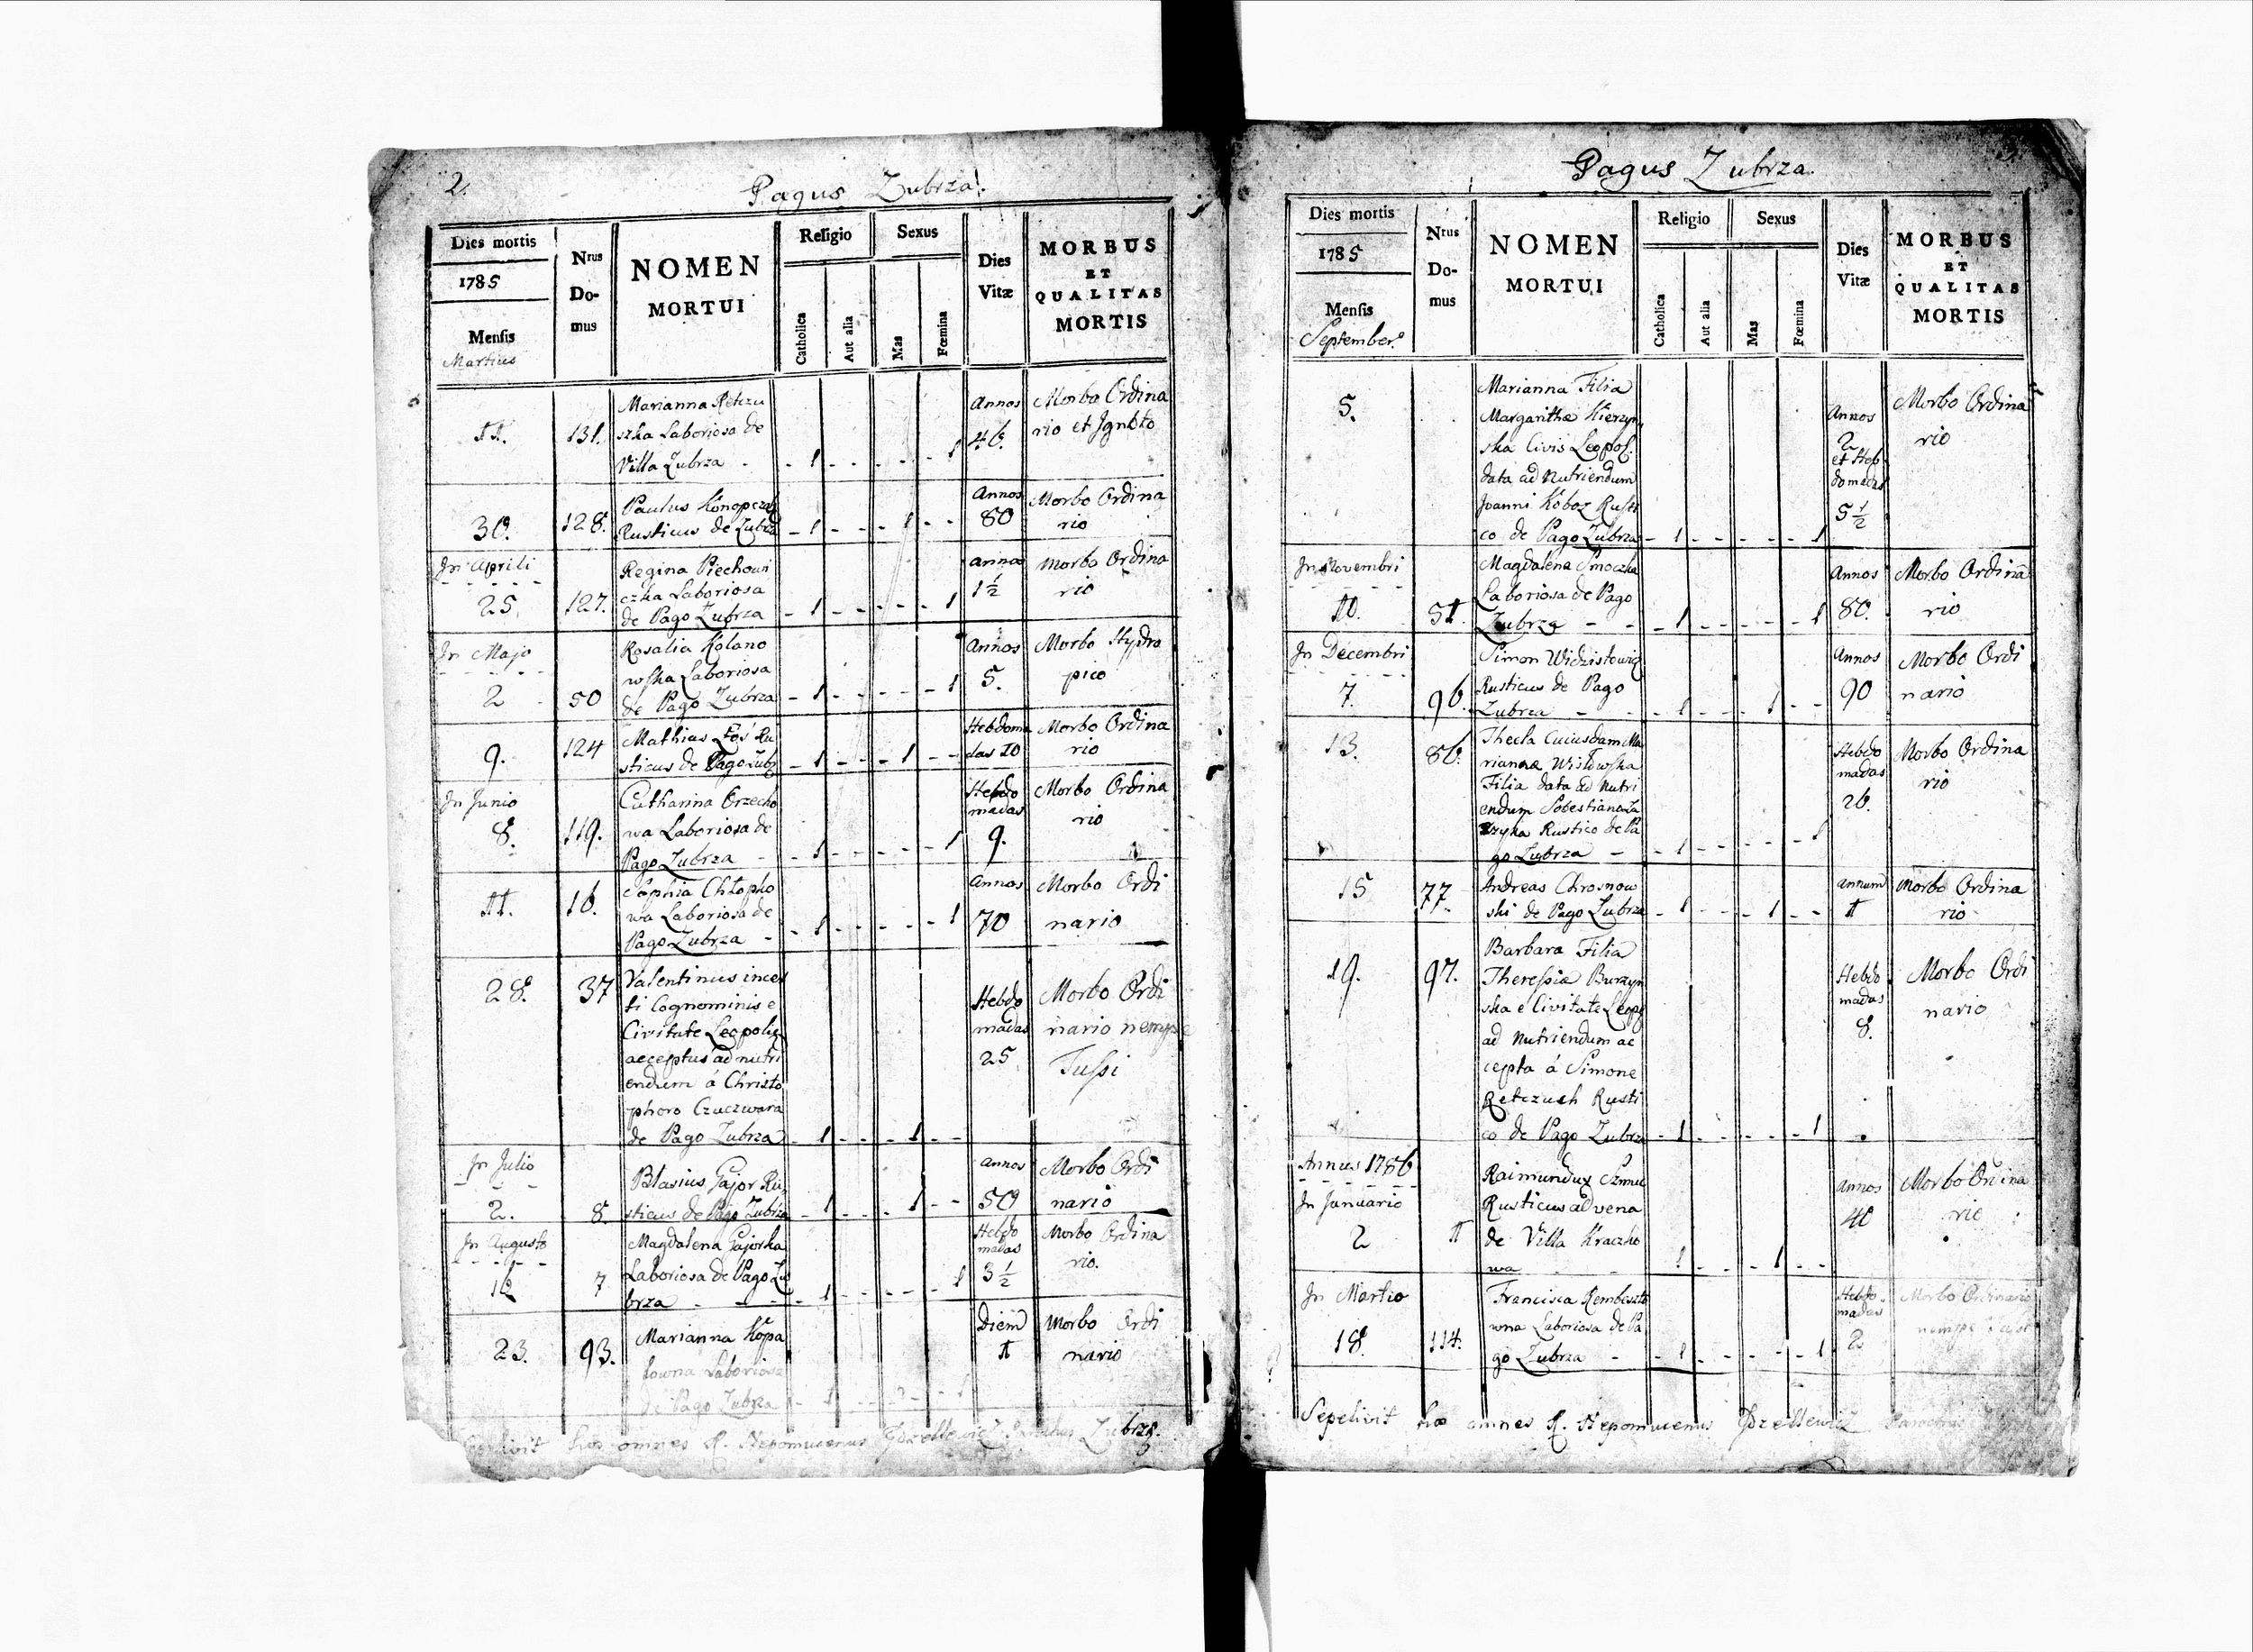 2.
Pagus Zubrza.
Dies mortis
1785
Mensis
Martius
Nrus
Do-
mus
NOMEN
MORTUI
Religio
Catholica
Aut alia
Sexus
Mas
Fœmina
Dies
Vitæ
MORBUS
ET
QUALITAS
MORTIS
11.
131.
Marianna Retczu
szka Laboriosa de
Villa Zubrza -
- 1 - - - - - 1
Annos
46.
Morbo Ordina
rio et Ignoto
30.
128.
Paulus Konopczak
Rusticus de Zubrza
- 1 - - - 1 - -
Annos
80
Morbo Ordina
rio
In Aprili
25.
127.
Regina Piechowi
czka Laboriosa
de Pago Zubrza
- 1 - - - - - 1
annos
1½
Morbo Ordina
rio
In Majo
2
50
Rosalia Kolano
wska Laboriosa
de Pago Zubrza
- 1 - - - - - 1
Annos
5.
Morbo Hydro
pico
9.
124
Mathias Łoś Ru
sticus de Pago Zubr
- 1 - - - 1 - -
Hebdoma
das 10
Morbo Ordina
rio
In Junio
8.
119.
Catharina Orzecho
wa Laboriosa de
Pago Zubrza -
- 1 - - - - - 1
Hebdo
madas
9.
Morbo Ordina
rio
11.
16.
Sophia Chłopko
wa Laboriosa de
Pago Zubrza -
- 1 - - - - - 1
Annos
70
Morbo Ordi
nario
28.
37
Valentinus incer
ti Cognominis e
Civitate Leopolien
acceptus ad nutri
endum á Christo
phoro Czuczwara
de Pago Zubrza
- 1 - - - 1 - -
Hebdo
madas
25
Morbo Ordi
nario nempe
Tussi
In Julio
2.
8.
Blasius Gajor Ru
sticus de Pago Zubrza
- 1 - - - 1 - -
annos
50
Morbo Ordi
nario
In Augusto
7
Magdalena Gajorka
Laboriosa de Pago Zu
brza - - -
- 1 - - - - - 1
Hebdo
madas
3½
Morbo Ordina
rio.
23.
93.
Marianna Kopa
Laboriosa
de Pago Zubrza
- 1 - - - - 1
Diem
1
Morbo Ordi
nario
hos omnes R. Nepomucenus Zubrza
Pagus Zubrza.
Dies mortis
1785
Mensis
September.
Nrus
Do-
mus
NOMEN
MORTUI
Religio
Catholica
Aut alia
Sexus
Mas
Fœmina
Dies
Vitæ
MORBUS
ET
QUALITAS
MORTIS
5.
Marianna Filia
Margarithæ Kierzyn
ska Civis Leopol.
data ad Nutriendum
Joanni Koboz Rusti
co de Pago Zubrza
- 1 - - - - - 1
Annos
2
et Heb
domadas
5½
Morbo Ordina
rio
In Novembri
10.
51.
Magdalena Smoczka
Laboriosa de Pago
Zubrza - -
- 1 - - - - - 1
Annos
80.
Morbo Ordina
rio
In Decembri
7.
96.
Simon
Rusticus de Pago
Zubrza - -
- 1 - - - 1 - -
Annos
90
Morbo Ordi
nario
13.
86.
Thecla Cuiusdam Ma
riannæ Wisłowska
Filia data ad Nutri
endum Sebestiano Za
Rustico de Pa
go Zubrza -
- 1 - - - - - 1
Hebdo
madas
26.
Morbo Ordina
rio
15
77.
Andreas Chrosnow
ski de Pago Zubrza
- 1 - - - 1 - -
annum
1
Morbo Ordina
rio
19.
97.
Barbara Filia
Theressiæ Burzyn
ska e Civitate Leopo
ad Nutriendum ac
cepta á Simone
Retczuch Rusti
co de Pago Zubrza
- 1 - - - - - 1
Hebdo
madas
8.
Morbo Ordi
nario
Annus 1786
In Januario
2
11
Raimundus
Rusticus advena
de Villa Kraczko
wa
1 - - - 1 - -
annos
40
Morbo Ordina
rio
In Martio
18.
114.
Francisca
wna Laboriosa de Pa
go Zubrza -
- 1 - - - - - 1
Hebdo
madas
2
Morbo Ordinario
nempe
Sepelivit hos omnes R. Nepomucenus